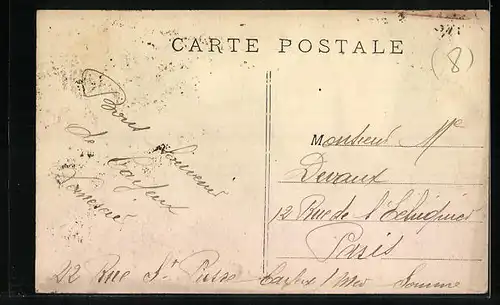 CARTE POSTALE
(8)
Bons Souvenirs
de Cayeux
Monsieur Mme
Devaux
12 Rue de l'Echiquier
Paris
22 Rue St Pierre Cayeux s/mer Somme